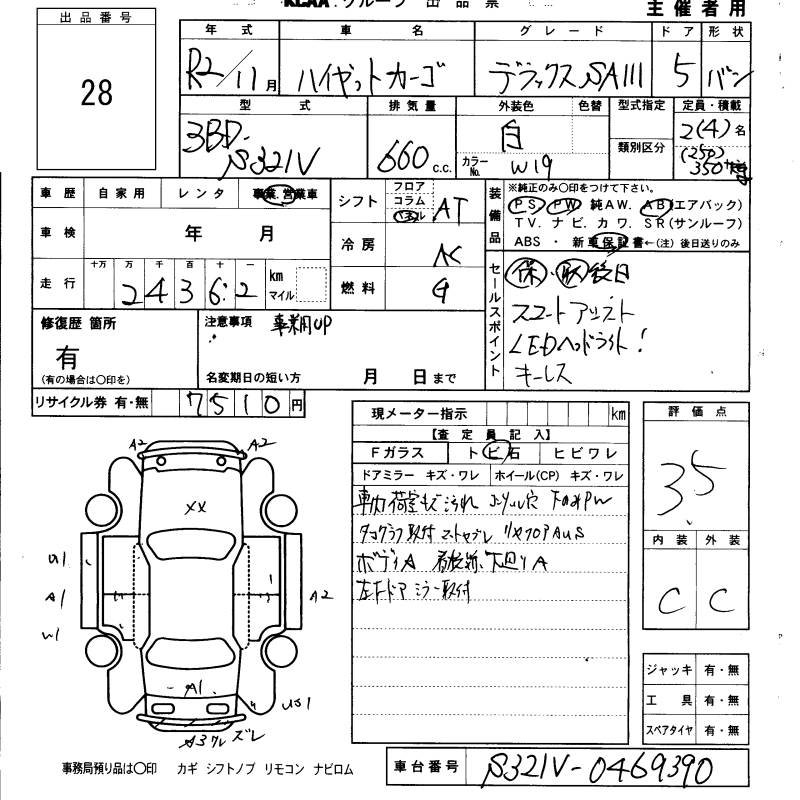 出品票
主催者用
出品番号
28
年式 車名 グレード ドア 形状
R2/11月 ハイゼットカーゴ デラックスSAIII 5 バン
型式 排気量 外装色 色替 型式指定 定員・積載
3BD-S321V 660c.c. 白 カラーNo. W19 類別区分 2(4)名 (250) 350
車歴 自家用 レンタ 事業.営業車
車検 年 月
走行 十万 万 千 百 十 一
2 4 3 6 2 km マイル
シフト フロア コラム AT
冷房 AC
燃料 G
装備品
※純正のみ〇印をつけて下さい。
PS PW 純AW. AB(エアバック)
TV. ナビ. カワ. SR(サンルーフ)
ABS ・ 新車保証書←(注)後日送りのみ
セールスポイント
保・取後日
スマートアシスト
LEDヘッドライト!
キーレス
修復歴 箇所
有
(有の場合は〇印を)
注意事項 事業用UP
名変期日の短い方 月 日まで
リサイクル券 有・無 7510円
現メーター指示 km
【査定員記入】
Fガラス トビ石 ヒビワレ
ドアミラー キズ・ワレ ホイール(CP) キズ・ワレ
車内荷室キズ汚れ
タコグラフ取付 リヤフロアAUS
ボディA 下廻りA
左Fドアミラー取付
評価点
3.5
内装 外装
C C
ジャッキ 有・無
工具 有・無
スペアタイヤ 有・無
A2 A2
XX
U1
A1 A2
W1
A1
US1
A3ワレ ズレ
事務局預り品は〇印 カギ シフトノブ リモコン ナビロム
車台番号 S321V-0469390